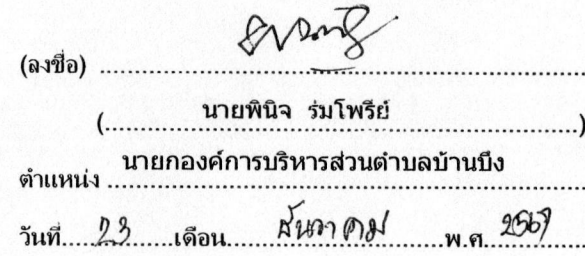 (ลงชื่อ) ................................................
(นายพินิจ ร่มโพรีย์)
ตำแหน่ง นายกองค์การบริหารส่วนตำบลบ้านบึง
วันที่ 23 เดือน ธันวาคม พ.ศ. 2567